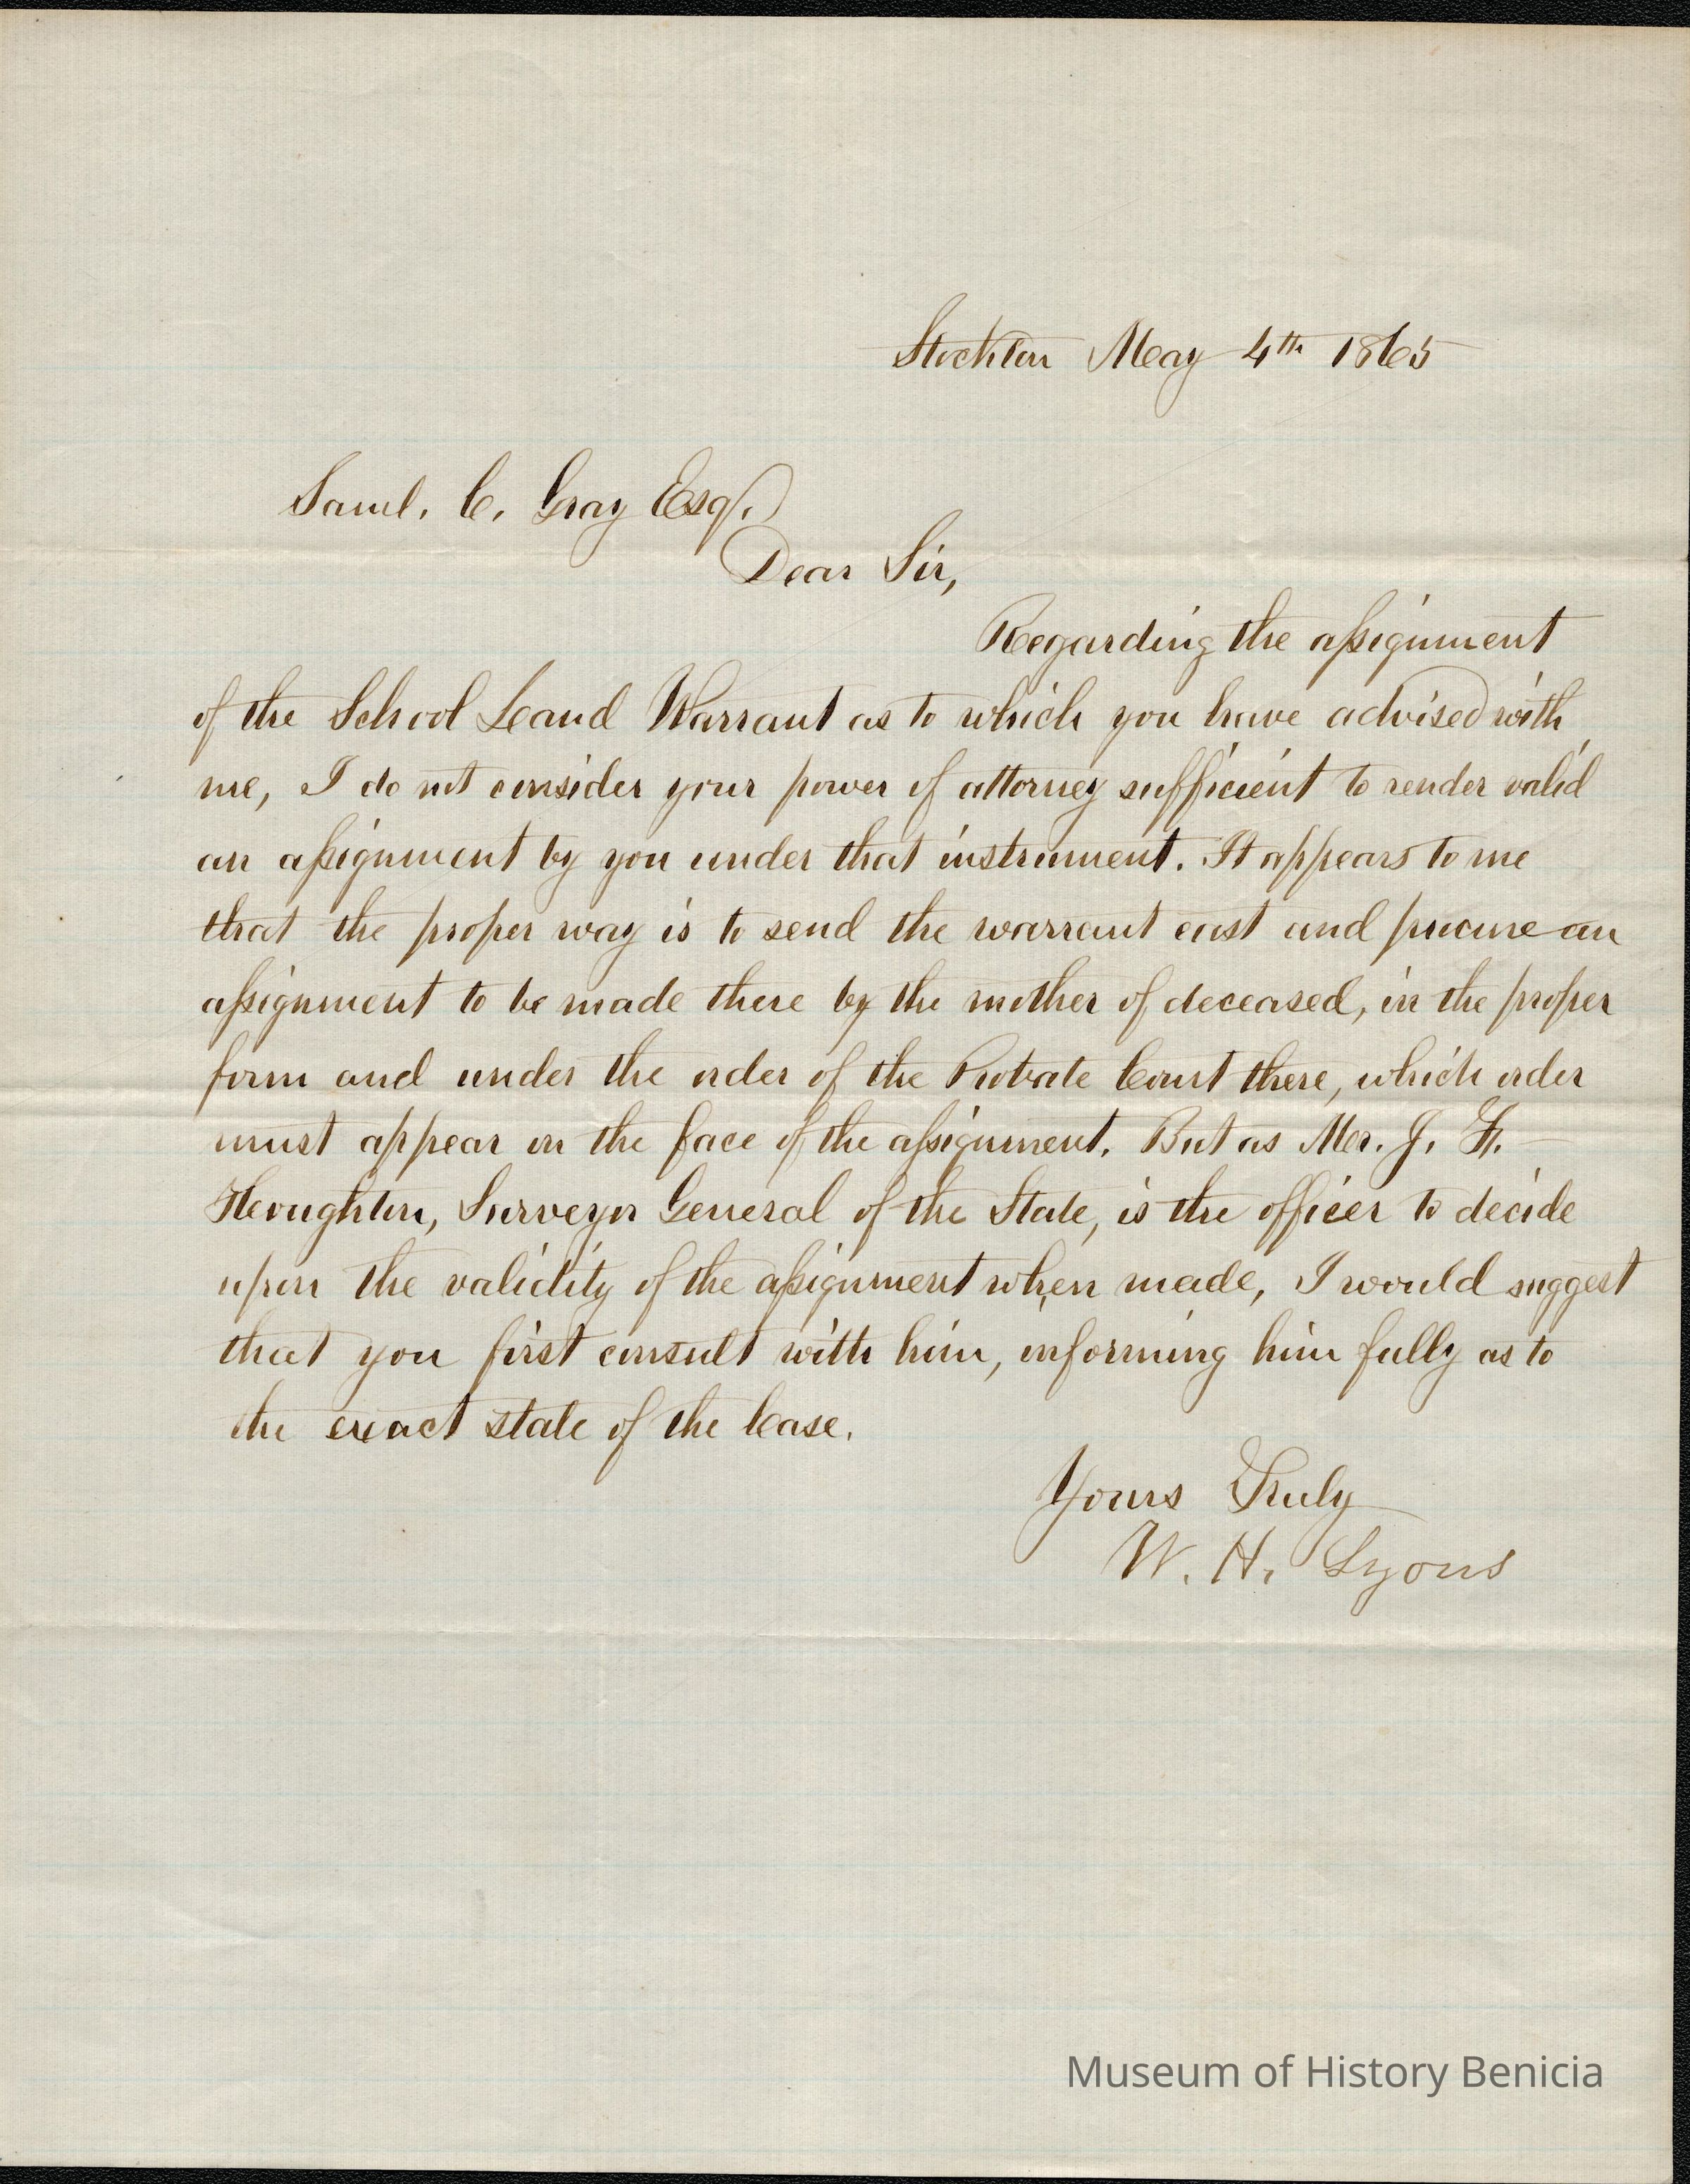 Stockton May 4th 1865
Saml. C. Gray Esq.
Dear Sir,
Regarding the aſsignment
of the School Land Warrant as to which you have advised with
me, I do not consider your power of attorney sufficient to render valid
an aſsignment by you under that instrument. It appears to me
that the proper way is to send the warrant east and procure an
aſsignment to be made there by the mother of deceased, in the proper
form and under the order of the Probate Court there, which order
must appear on the face of the aſsignment. But as Mr. J. F.
Houghton, Surveyor General of the State, is the officer to decide
upon the validity of the aſsignment when made, I would suggest
that you first consult with him, informing him fully as to
the exact state of the Case.
Yours Truly
W. H. Lyons
Museum of History Benicia